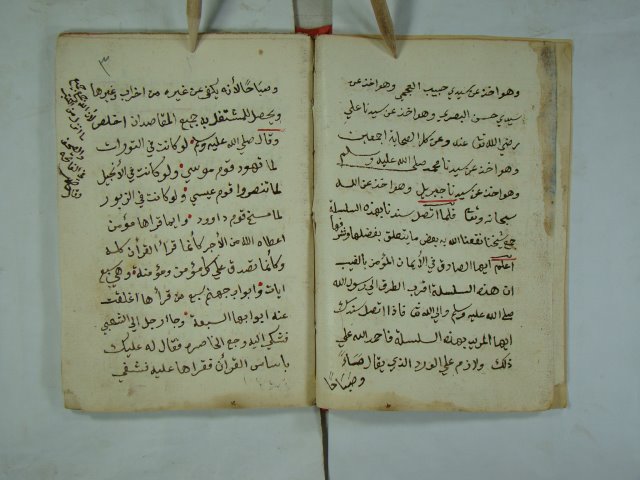 وهو اخذ عن سيدي حبيب العجمي وهو اخذ عن
سيدي حسن البصري وهو اخذ عن سيدنا علي
رضي الله تعا عنه وعن كل الصحابة اجمعين
وهو اخذ عن سيدنا محمد صلى الله عليه وسلم
وهو اخذ عن سيدنا جبريل وهو اخذ عن الله
سبحانه وتعا فلما اتصل سندنا بهذه السلسلة
جمع شيخنا نفعنا الله به بعض ما يتعلق بفضلها وشرفها
اعلم ايها الصادق في الأيمان المؤمن بالغيب
ان هذه السلسلة اقرب الطرق الى رسول الله
صلى الله عليه وسلم والى الله تعا فاذا اتصل سندك
ايها المريد بهذه السلسلة فاحمد الله على
ذلك ولازم على الورد الذي يقال مساءً
وصباحًا
٣
وصباحًا لأنه يكفي عن غيره من احزاب وغيرها
ويحصل للمشتغل به جميع المقاصد ان اخلص
وقال صلى الله عليه وسلم لو كانت في التورات
لما تهود قوم موسي ولو كانت في الأنجيل
لما تنصروا قوم عيسي ولو كانت في الزبور
لما مسخ قوم داوود وايما قراها مؤمن
اعطاه الله من الأجر كأنما قرأ القرأن كله
وكأنما تصدق على كل مؤمن ومؤمنة وهي سبع
ايات وابواب جهنم سبع من قرأها اغلقت
عنه ابوابها السبعة وجا رجل الى الشعبي
فشكى اليه وجع الخاصره فقال له عليك
باساس القرأن فقراها عليه فشفي